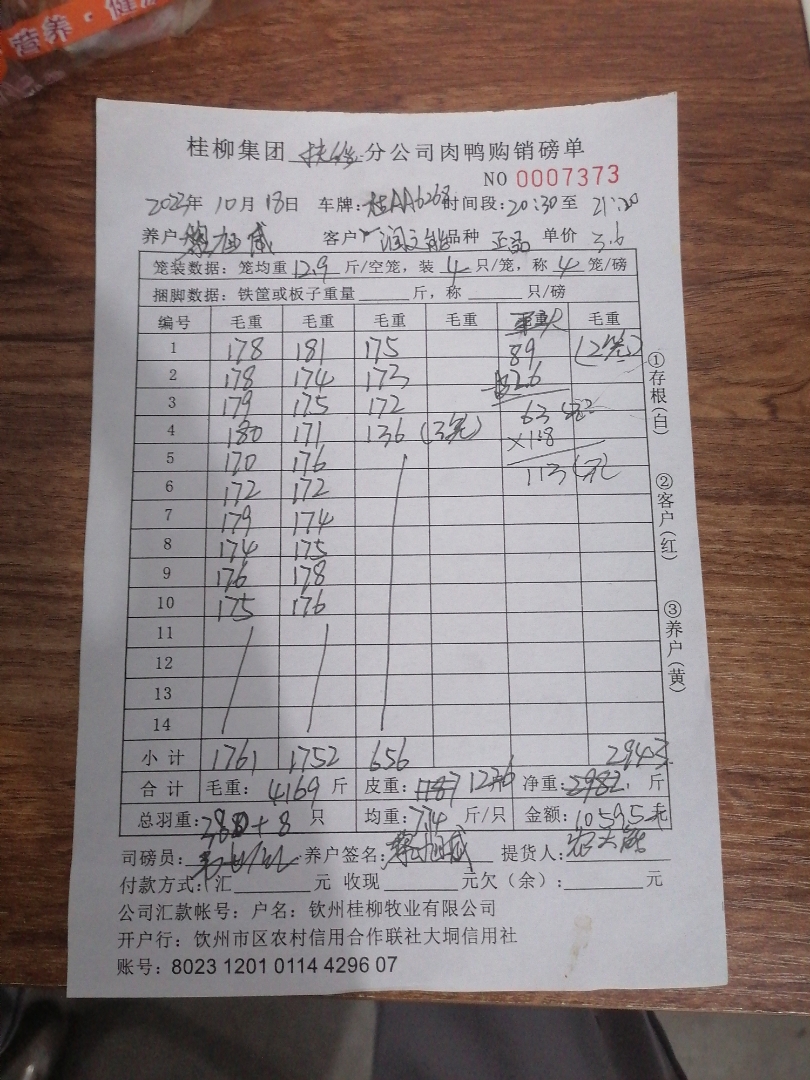 营养·健
桂柳集团 分公司肉鸭购销磅单
NO 0007373
2022年 10月 18日 车牌: 桂AA6268 时间段: 20:30 至 21:20
养户 客户 品种 正品 单价 3.6
笼装数据: 笼均重 12.9 斤/空笼, 装 4 只/笼, 称 4 笼/磅
捆脚数据: 铁筐或板子重量 斤, 称 只/磅
编号 毛重 毛重 毛重 毛重 毛重
1 178 181 175 89 (2笼)
2 178 174 173 26
3 179 175 172 63
4 180 171 136 (3笼) ×1.8
5 170 176 113 (元)
6 172 172
7 179 174
8 174 175
9 176 178
10 175 176
11
12
13
14
小计 1761 1752 656 2943
合计 毛重: 4169 斤 皮重: 1226 净重: 2982 斤
总羽重: 380+8 只 均重: 7.74 斤/只 金额: 10595元
司磅员: 养户签名: 提货人:
付款方式: 汇 元 收现 元欠(余): 元
公司汇款帐号: 户名: 钦州桂柳牧业有限公司
开户行: 钦州市区农村信用合作联社大垌信用社
账号: 8023 1201 0114 4296 07
①存根(白)
②客户(红)
③养户(黄)